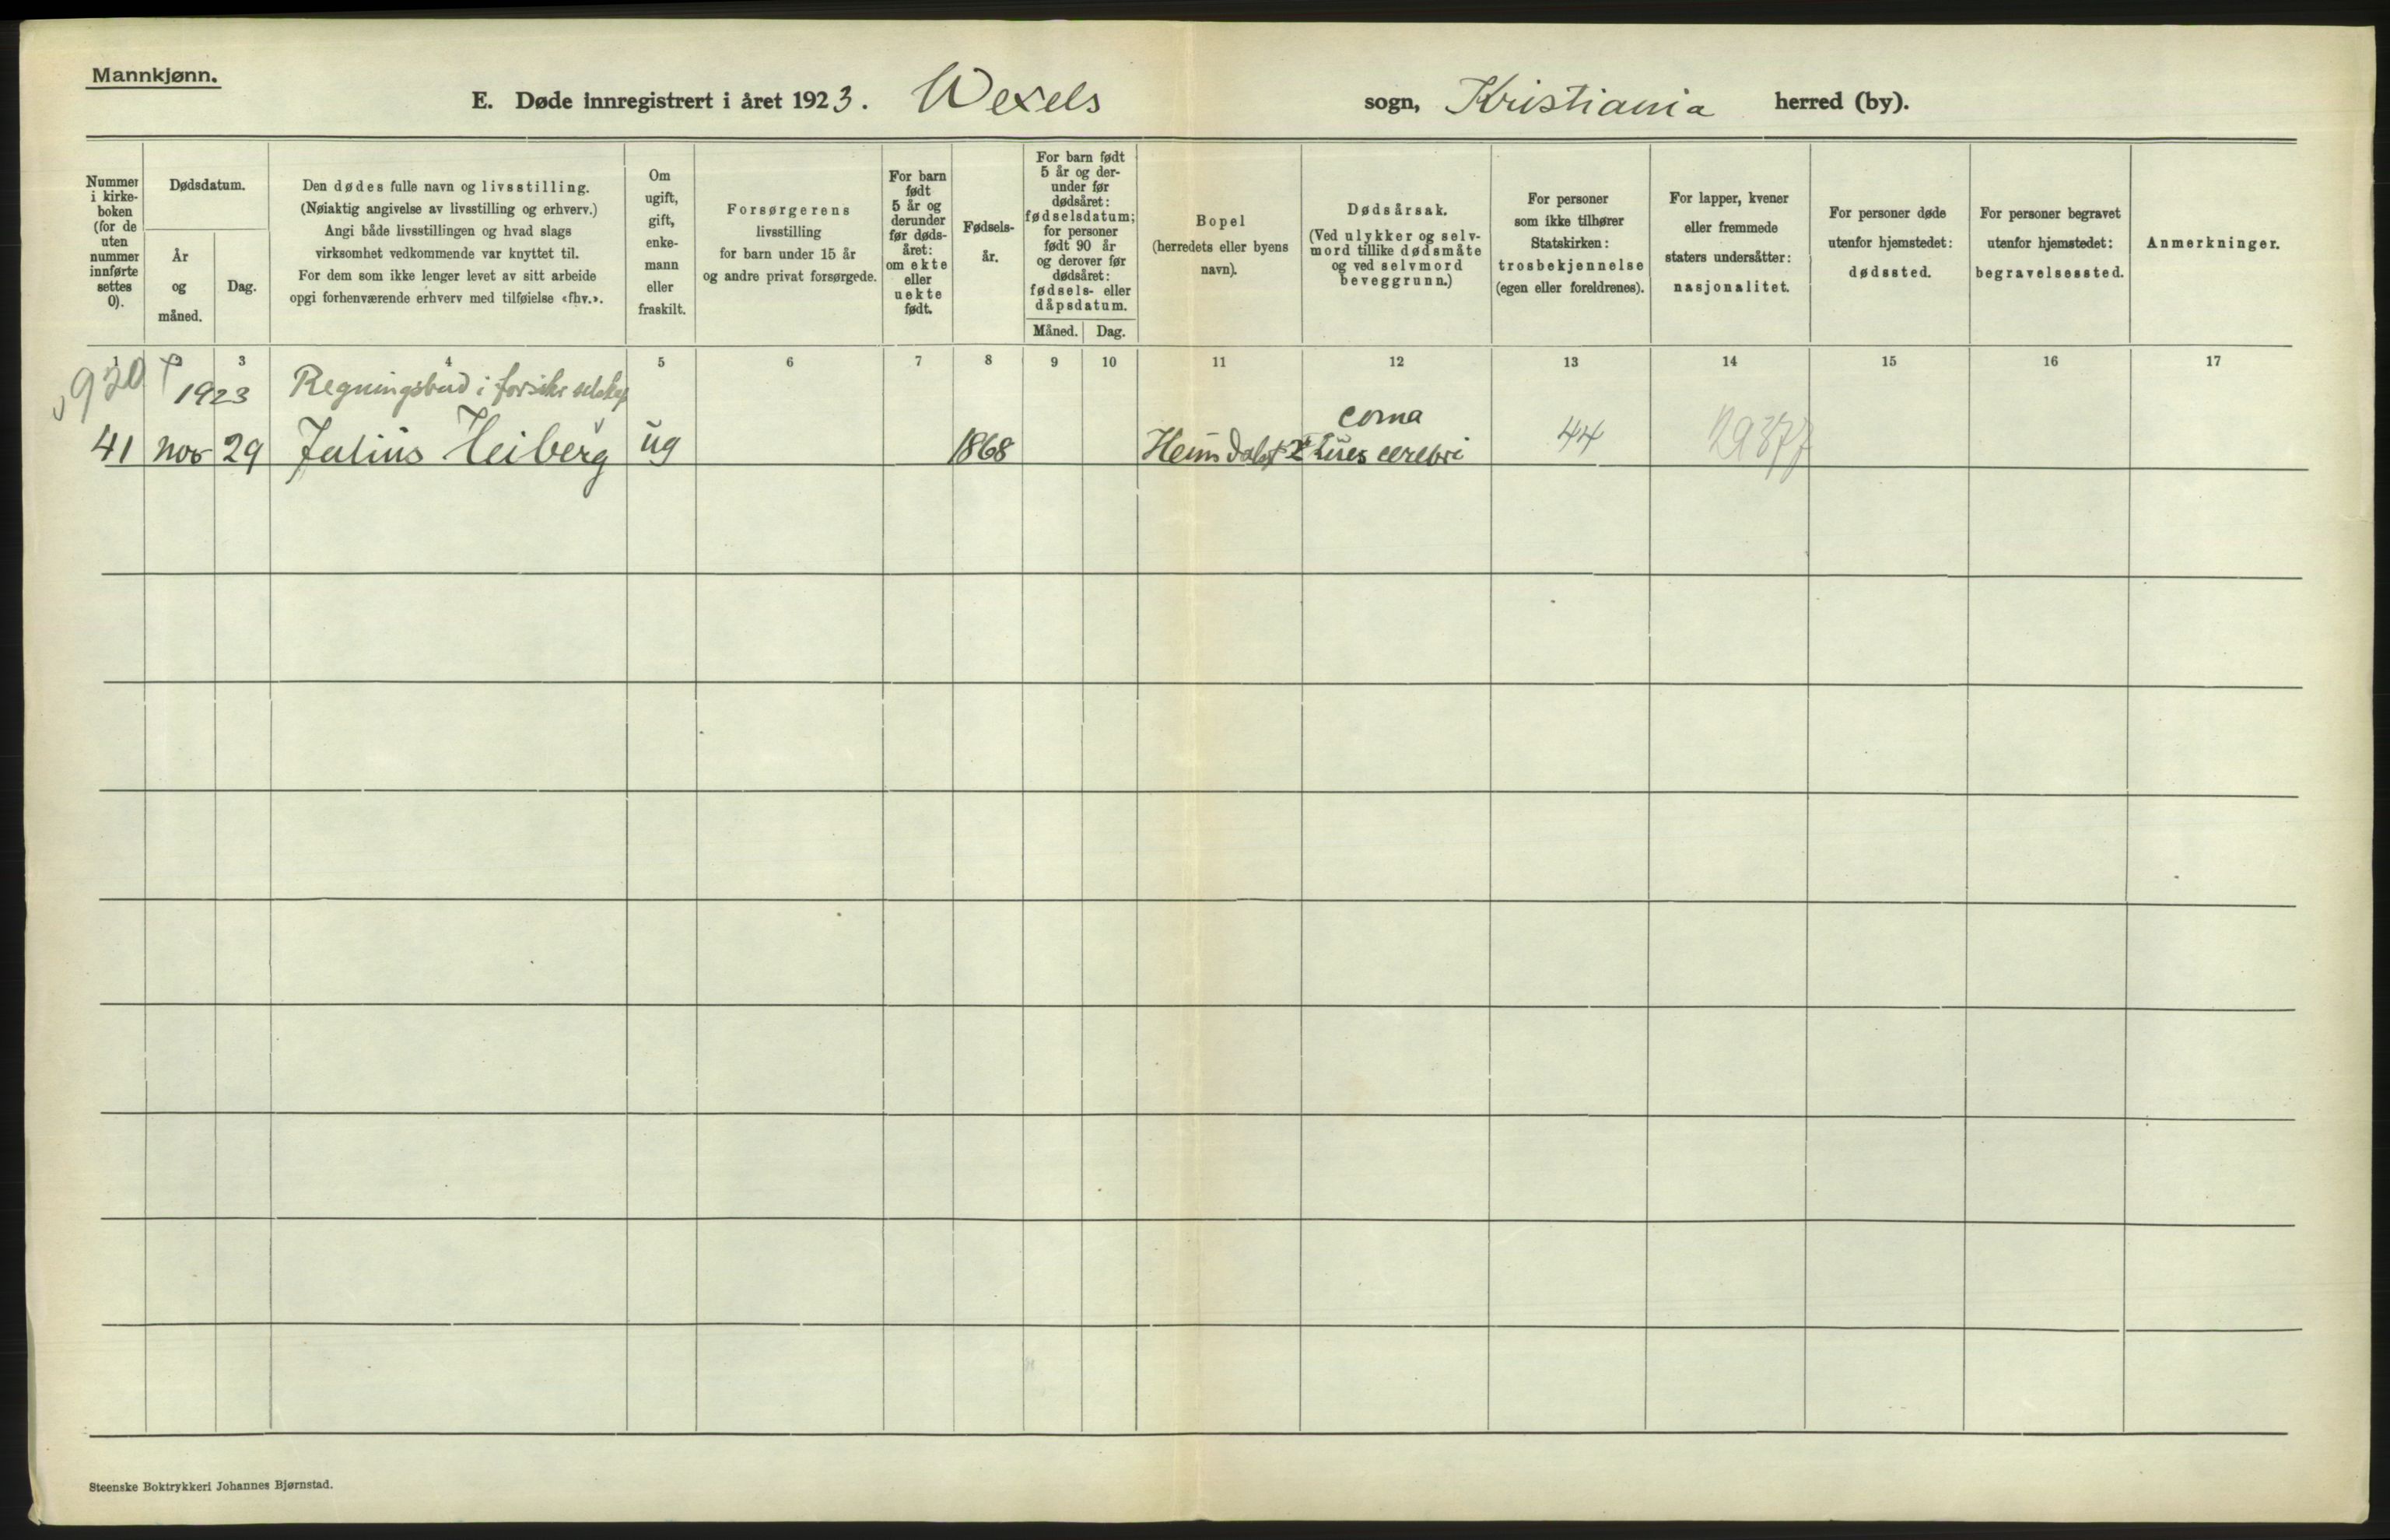 Mannkjønn.
E. Døde innregistrert i året 1923. Wexels sogn, Kristiania herred (by).
Nummer i kirkeboken (for de uten nummer innførte settes 0).
Dødsdatum.
År og måned.
Dag.
Den dødes fulle navn og livsstilling.
(Nøiaktig angivelse av livsstilling og erhverv.)
Angi både livsstillingen og hvad slags
virksomhet vedkommende var knyttet til.
For dem som ikke lenger levet av sitt arbeide
opgi forhenværende erhverv med tilføielse «fhv.».
Om
ugift,
gift,
enke-
mann
eller
fraskilt.
Forsørgerens
livsstilling
for barn under 15 år
og andre privat forsørgede.
For barn
født
5 år og
derunder
før døds-
året:
om ekte
eller
uekte
født.
Fødsels-
år.
For barn født
5 år og der-
under før
dødsåret:
fødselsdatum;
for personer
født 90 år
og derover før
dødsåret:
fødsels- eller
dåpsdatum.
Måned. Dag.
Bopel
(herredets eller byens
navn).
Dødsårsak.
(Ved ulykker og selv-
mord tillike dødsmåte
og ved selvmord
beveggrunn.)
For personer
som ikke tilhører
Statskirken:
trosbekjennelse
(egen eller foreldrenes).
For lapper, kvener
eller fremmede
staters undersåtter:
nasjonalitet.
For personer døde
utenfor hjemstedet:
dødssted.
For personer begravet
utenfor hjemstedet:
begravelsessted.
Anmerkninger.
1 3 4 5 6 7 8 9 10 11 12 13 14 15 16 17
1923 Regningsbud i forsikr selskap
coma
41 nov 29 Julius Heiberg ug 1868 Heimdalsg 2 Lues cerebri 44
Steenske Boktrykkeri Johannes Bjørnstad.